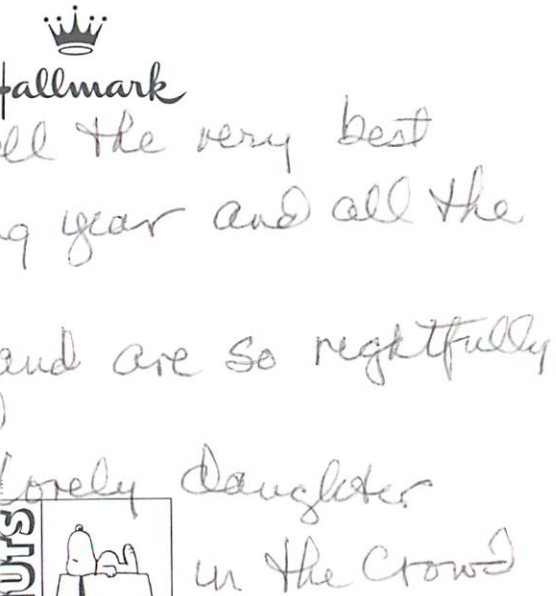 Hallmark
all the very best
year and all the
and are so rightfully
Lovely daughter
in the Crowd